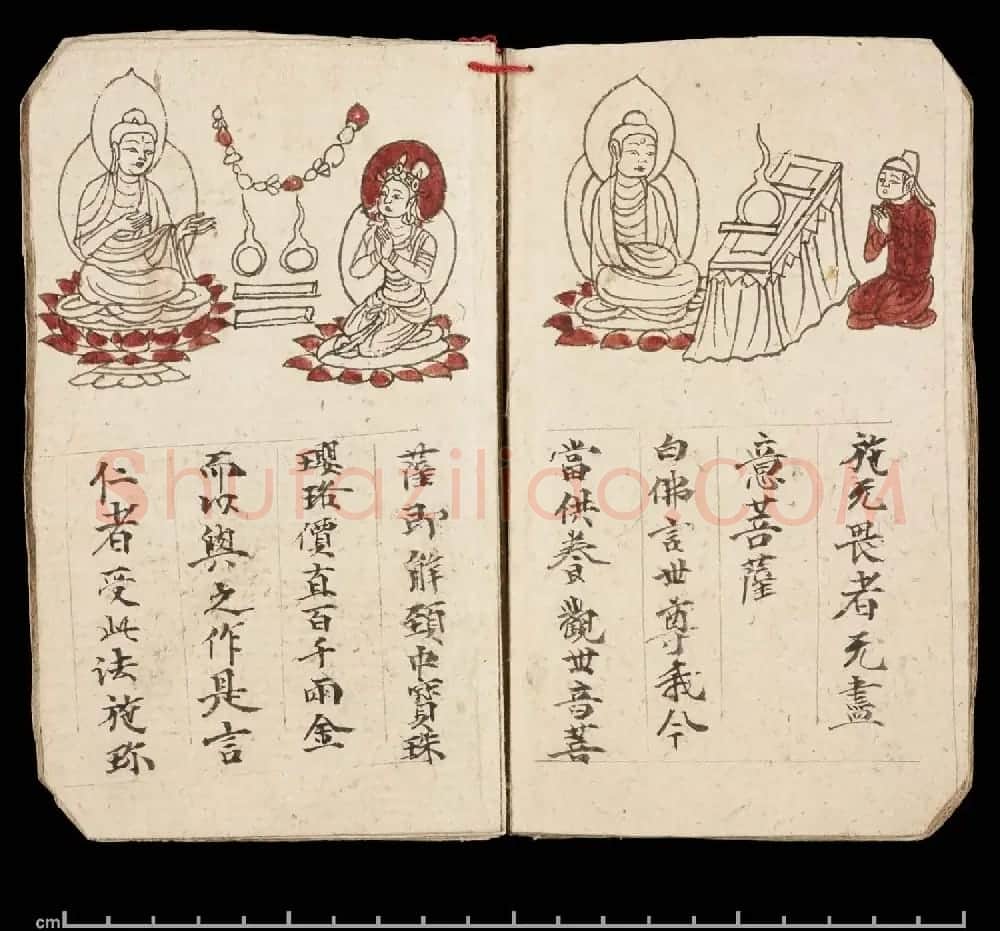 施无畏者无盡
意菩薩
白佛言世尊我今
當供養觀世音菩
薩即解頸中寶珠
璎珞價直百千兩金
而以與之作是言
仁者受此法施珎
Shufaziliao.COM
cm